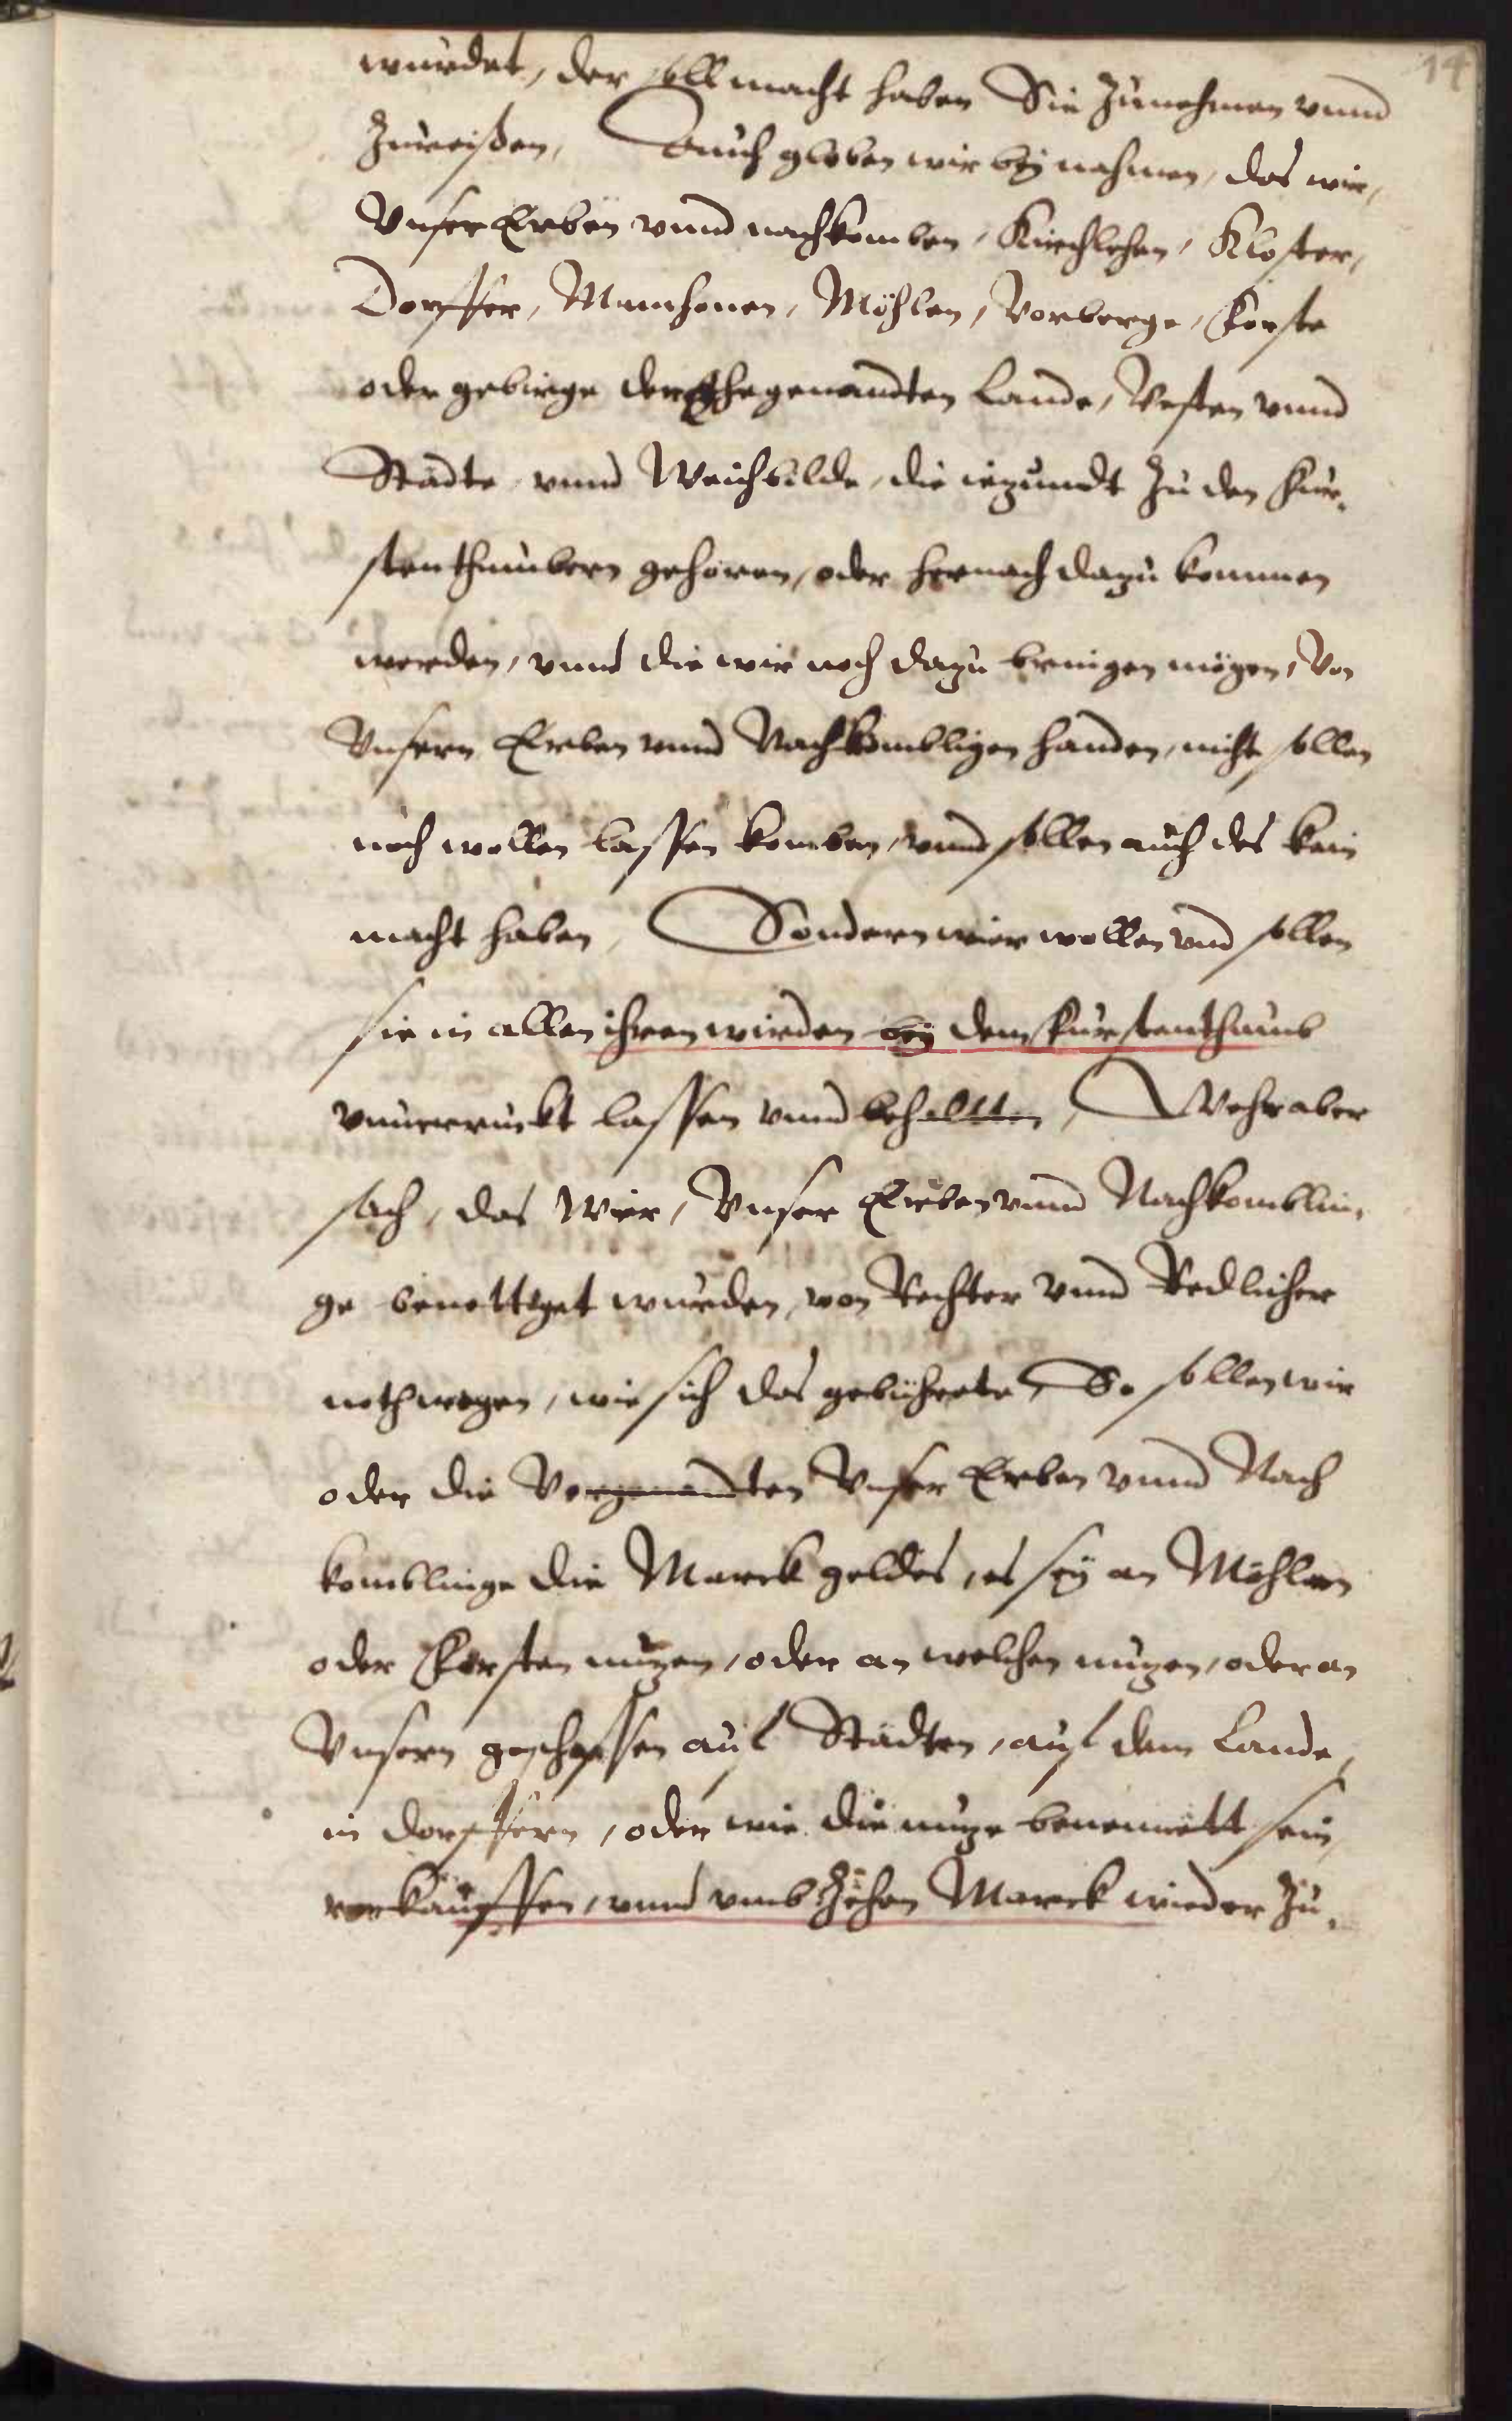 14
wurdet, der soll macht haben Sie Zunehmen vnnd
Zureißen, Auch globen wir bej nahmen, das wir,
Vnser Erben vnnd nachkomben, Kirchlehen, Kloster,
Dorffer, Mannhonen, Möhlen, Vorberge, Forste
oder gebirge der Ehegenandten Lande, Vesten vnnd
Städte vnnd Weichbilde, die iezundt Zu den Fur,
stenthumbern gehören, oder hernach dazu kommen
werden, vnnd die wir noch dazu bringen mögen, Von
Vnsern Erben vnnd Nachkombligen handen, nicht sollen
noch wollen lassen komben, vnnd sollen auch des kein
macht haben, Sondern wier wollen vnd sollen
sie in allen ihren wirden bej dem Furstenthumb
vnuerruckt lassen vnnd behaltten, Wehr aber
sach, das Wier, Vnser Erben vnnd Nachkomblin,
ge benottiget wurden, von Rechter vnnd Redlicher
noth wegen, wie sich das gebührete, So sollen wir
oder die Vorgenandten Vnser Erben vnnd Nach
komblinge die Marck geldes, es sej an Möhlen
oder Forsten nuzen, oder an welchen nuzen, oder an
Vnsern geschossen auf Städten, auf dem Lande,
in dorffern, oder wie die nuze benennett sein,
verkauffen, vnnd vmb Zehen Marck wieder Zu,